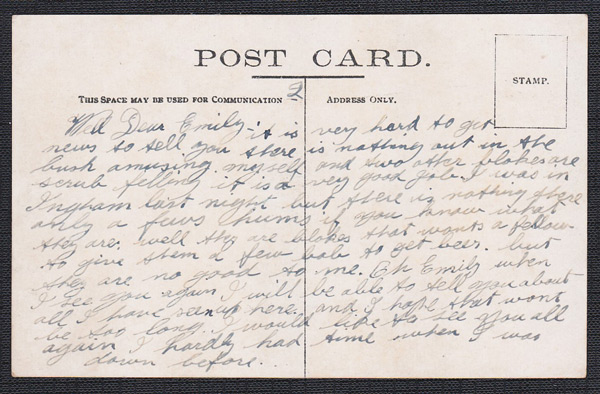 POST CARD.
STAMP.
THIS SPACE MAY BE USED FOR COMMUNICATION
ADDRESS ONLY.
2
Well Dear Emily it is very hard to get
news to tell you there is nothing out in the
bush amusing. myself and two other blokes are
scrub felling it is a very good job. I was in
Ingham last night but there is nothing there
only a fews chums if you know what
they are. well they are blokes that wants a fellow
to give them a few bob to get beer. but
they are no good to me. Eh Emily when
I see you again I will be able to tell you about
all I have seen up here. and I hope that wont
be too long. I would like to see you all
again I hardly had time when I was
down before.